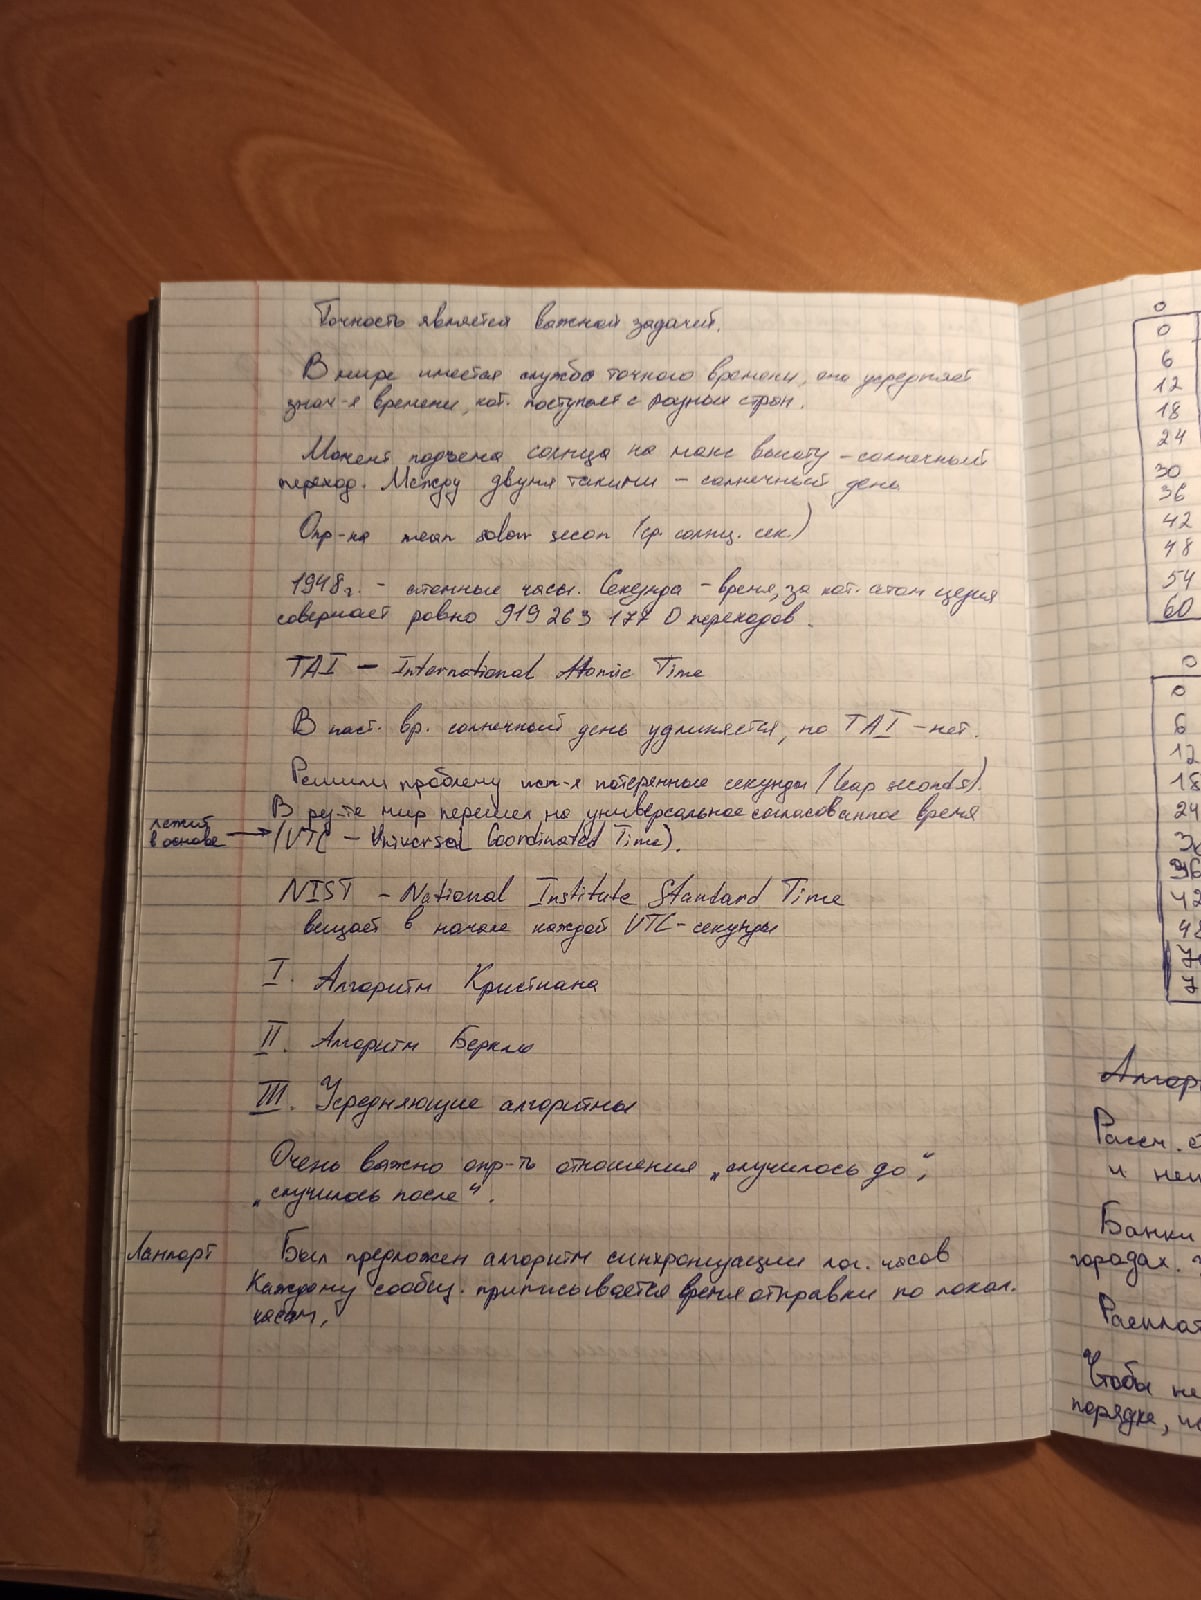 Точность является важной задачей.
В мире имеется служба точного времени, она усредняет
знач-я времени, кот. поступает с разных стран.
Момент подъема солнца на макс высоту - солнечный
переход. Между двумя такими - солнечный день
Опр-на mean solar secon (ср. солнц. сек.)
1948г. - атомные часы. Секунда - время, за кот. атом цезия
совершает ровно 919 263 177 0 переходов.
TAI - International Atomic Time
В наст. вр. солнечный день удлиняется, но TAI - нет.
Решили проблему исп-я потерянные секунды (leap seconds).
В рез-те мир перешел на универсальное согласованное время
лежит
в основе
(UTC - Universal Coordinated Time).
NIST - National Institute Standard Time
вещает в начале каждой UTC-секунды
I. Алгоритм Кристиана
II. Алгоритм Беркли
III. Усредняющие алгоритмы
Очень важно опр-ть отношения „случилось до“,
„случилось после“.
Лампорт
Был предложен алгоритм синхронизации лог. часов
Каждому сообщ. приписывается время отправки по локал.
часам.
0
0
6
12
18
24
30
36
42
48
54
60
0
0
6
12
18
24
36
42
Рассм.
Банки
городах.
Чтобы не
порядке,